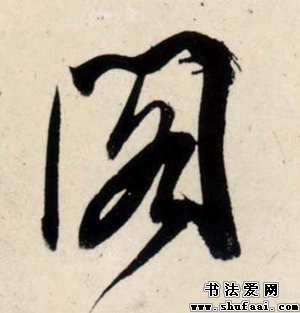 阁
书法爱网
www.shufaai.com